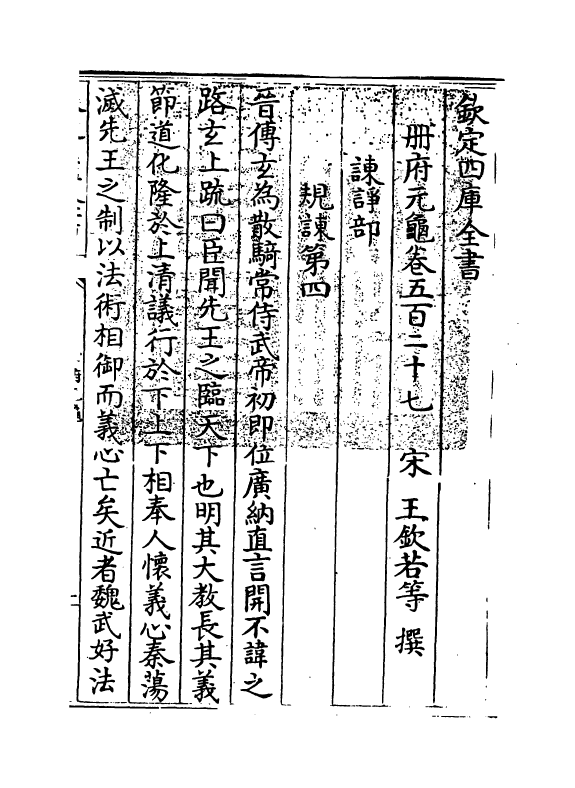 欽定四庫全書
冊府元龜卷五百二十七　宋　王欽若等　撰
諫諍部
規諫第四
晉傅玄為散騎常侍武帝初即位廣納直言開不諱之
路玄上疏曰臣聞先王之臨天下也明其大教長其義
節道化隆於上清議行於下上下相奉人懷義心秦蕩
滅先王之制以法術相御而義心亡矣近者魏武好法